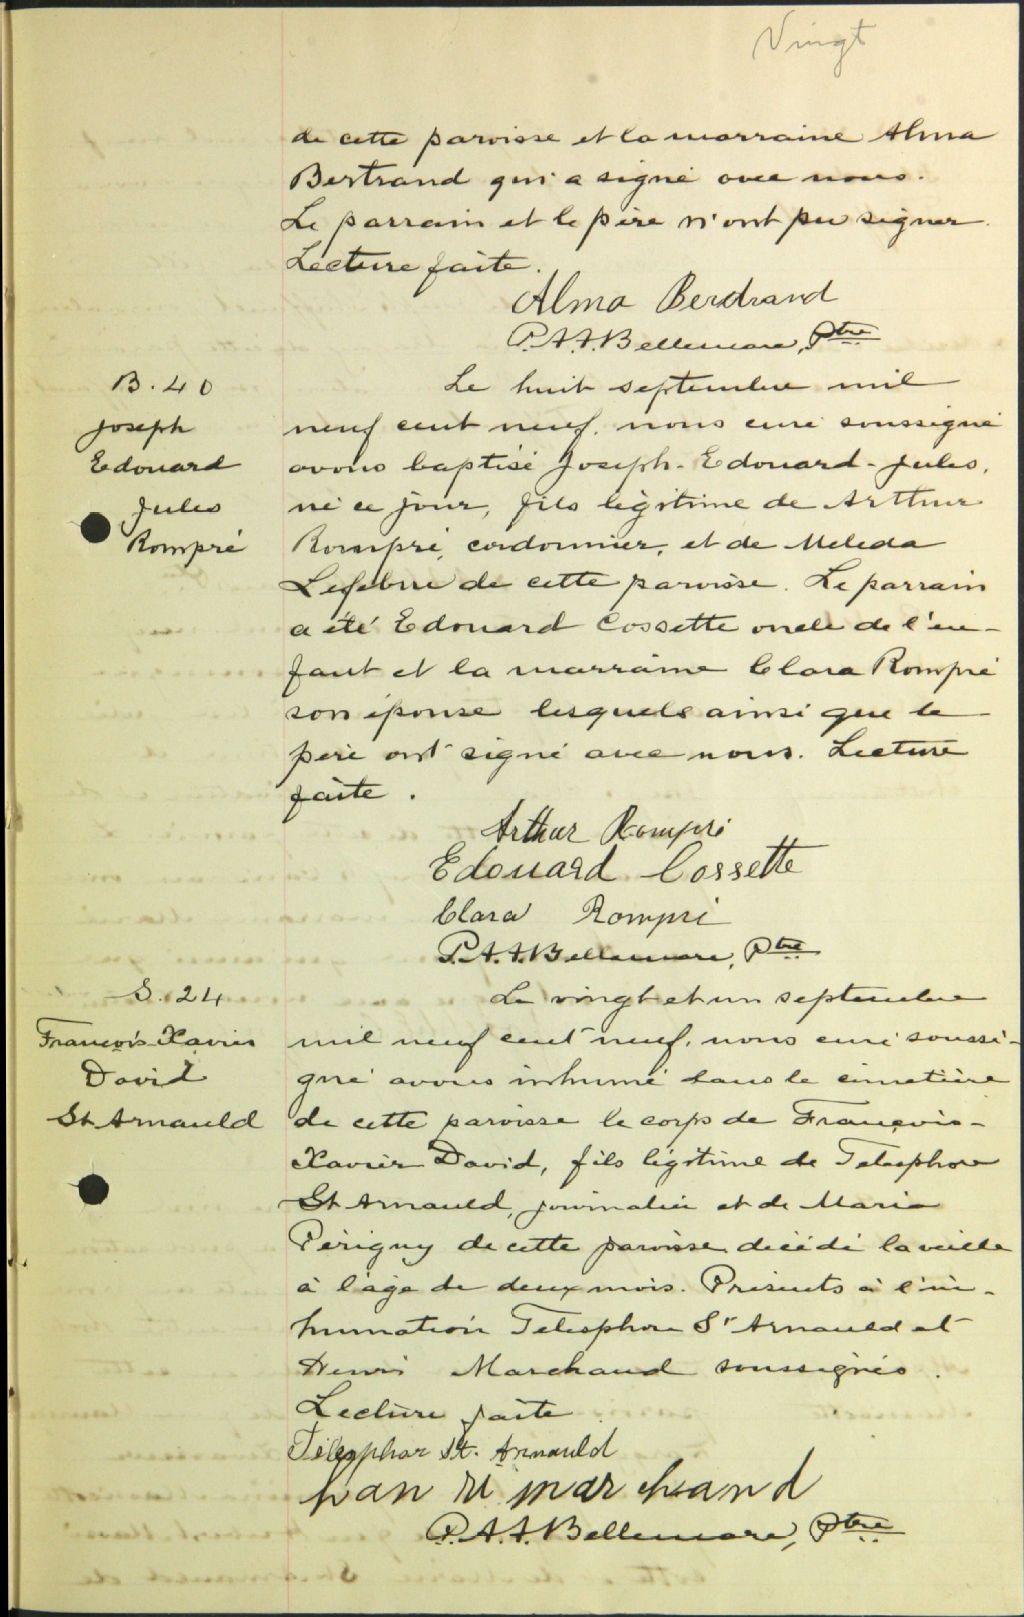 Vingt
de cette paroisse et la marraine Alma
Bertrand qui a signé avec nous.
Le parrain et le père n'ont pu signer.
Lecture faite.
Alma Berdrand
P.A.A.Bellemare, Ptre
B. 40
Joseph
Edouard
Jules
Rompré
Le huit septembre mil
neuf cent neuf, nous curé soussigné
avons baptisé Joseph-Edouard-Jules,
né ce jour, fils légitime de Arthur
Rompré, cordonnier, et de Meleda
Lefebvre de cette paroisse. Le parrain
a été Edouard Cossette oncle de l'en-
fant et la marraine Clara Rompré
son épouse lesquels ainsi que le
père ont signé avec nous. Lecture
faite.
Arthur Rompré
Edouard Cossette
Clara Rompré
P.A.A.Bellemare, Ptre
S. 24
François-Xavier
David
St Arnauld
Le vingt et un septembre
mil neuf cent neuf, nous curé soussi-
gné avons inhumé dans le cimetière
de cette paroisse le corps de François-
Xavier David, fils légitime de Telesphore
St Arnauld, journalier et de Maria
Périgny de cette paroisse décédé la veille
à l'âge de deux mois. Présents à l'in-
humation Telesphore St Arnauld et
Henri Marchand soussignés.
Lecture faite
Télesphor St. Arnauld
han ri mar chand
P.A.A.Bellemare, Ptre